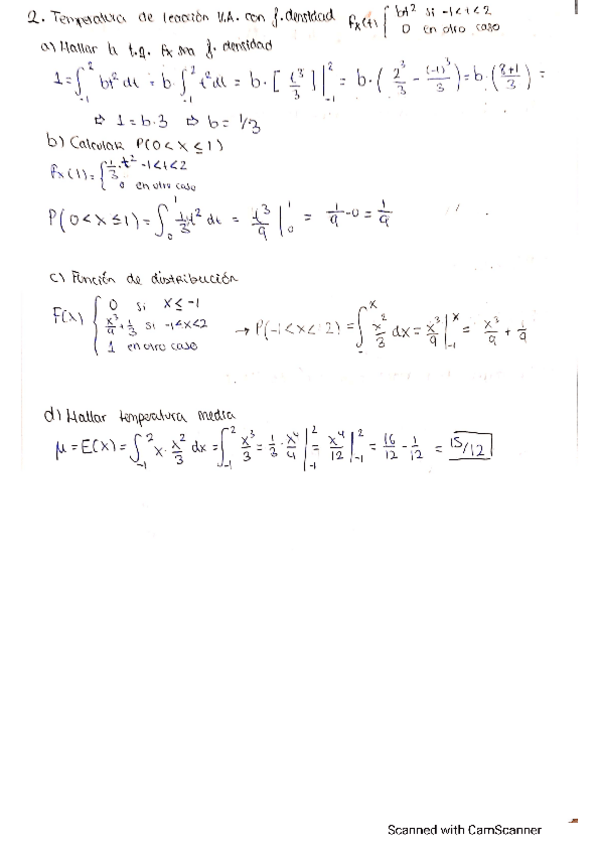 2. Temperatura de reacción V.A. con f. densidad fx(t) { bt² si -1<t<2
0 en otro caso
a) Hallar b t.q. fx sea f. densidad
1 = ∫₋₁² bt² dt = b · ∫₋₁² t² dt = b · [t³/3]|₋₁² = b · (2³/3 - (-1)³/3) = b · (8+1/3) =
⇒ 1 = b·3 ⇒ b = 1/3
b) Calcular P(0<X≤1)
fx(t) = { 1/3·t² -1<t<2
0 en otro caso
P(0<X≤1) = ∫₀¹ 1/3 t² dt = t³/9 |₀¹ = 1/9 - 0 = 1/9
c) Función de distribución
F(x) { 0 si x≤-1
x³/9 + 1/3 si -1<x<2 → P(-1<x<2) = ∫ˣ x²/3 dx = x³/9 |₋₁ˣ = x³/9 + 1/9
1 en otro caso
d) Hallar temperatura media
μ = E(X) = ∫₋₁² x · x²/3 dx = ∫₋₁² x³/3 = 1/3 · x⁴/4 |₋₁² = x⁴/12 |₋₁² = 16/12 - 1/12 = 15/12
Scanned with CamScanner